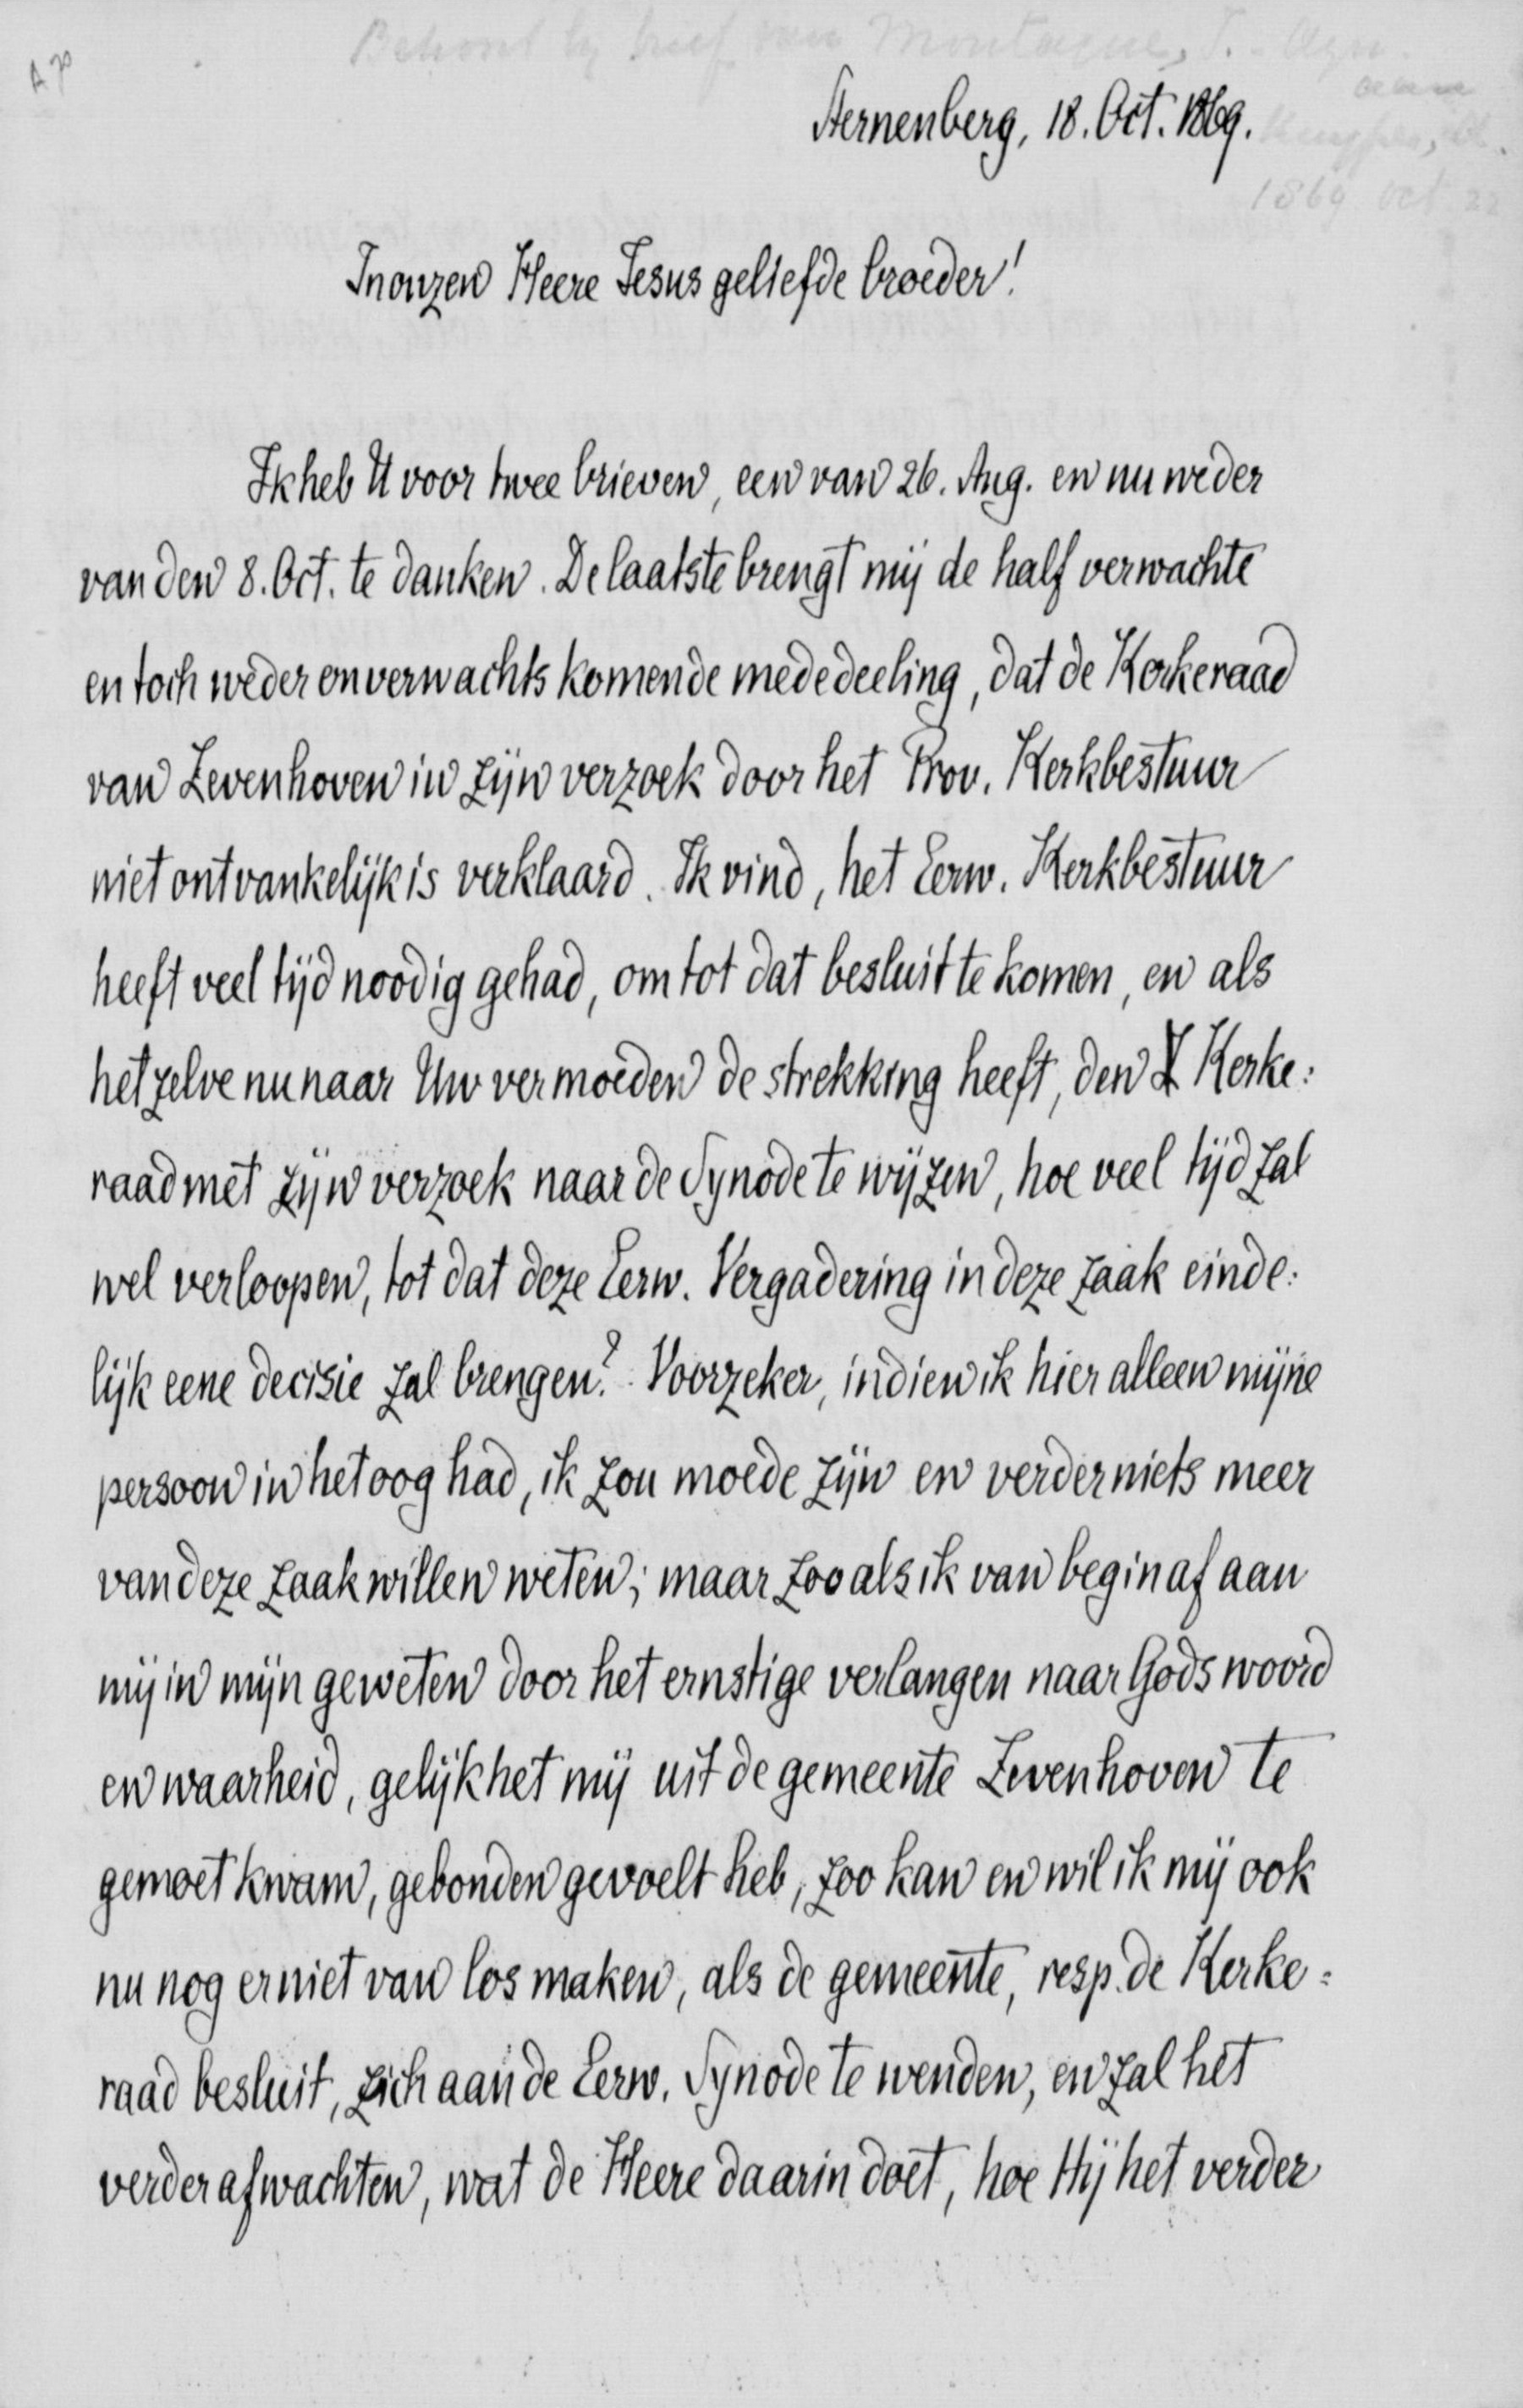 Behoort bij brief van Montagne, J. - Agn.
aan
A 70
Sternenberg, 18. Oct. 1869.
Kuyper, A.
1869 oct 22
In onzen Heere Jesus geliefde broeder!
Ik heb U voor twee brieven, een van 26. Aug. en nu weder
van den 8. Oct. te danken. De laatste brengt mij de half verwachte
en toch weder onverwachts komende mededeeling, dat de Kerkeraad
van Zevenhoven in zijn verzoek door het Prov. Kerkbestuur
niet ontvankelijk is verklaard. Ik vind, het Eerw. Kerkbestuur
heeft veel tijd noodig gehad, om tot dat besluit te komen, en als
hetzelve nu naar Uw vermoeden de strekking heeft, den Kerke:
raad met zijn verzoek naar de Synode te wijzen, hoe veel tijd zal
wel verloopen, tot dat deze Eerw. Vergadering in deze zaak einde:
lijk eene decisie zal brengen? Voorzeker, indien ik hier alleen mijne
persoon in het oog had, ik zou moede zijn en verder niets meer
van deze zaak willen weten; maar zoo als ik van begin af aan
mij in mijn geweten door het ernstige verlangen naar Gods woord
en waarheid, gelijk het mij uit de gemeente Zevenhoven te
gemoet kwam, gebonden gevoelt heb, zoo kan en wil ik mij ook
nu nog er niet van los maken, als de gemeente, resp. de Kerke:
raad besluit, zich aan de Eerw. Synode te wenden, en zal het
verder afwachten, wat de Heere daarin doet, hoe Hij het verder